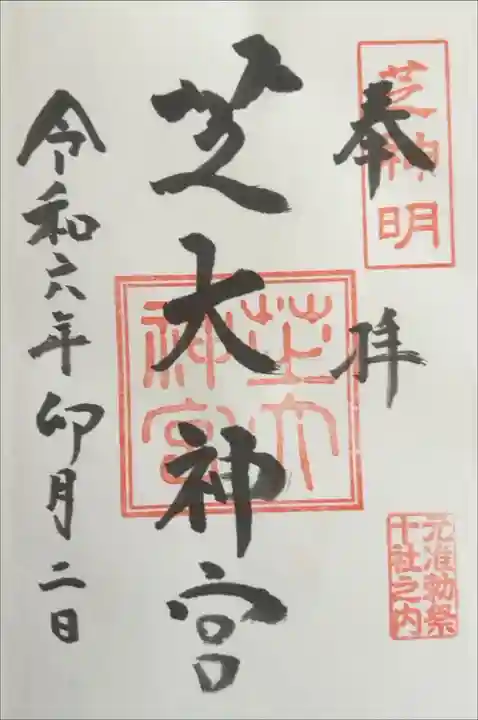 奉拝
芝神明
元准勅祭
十社之内
芝大神宮
芝大
神宮
令和六年卯月二日